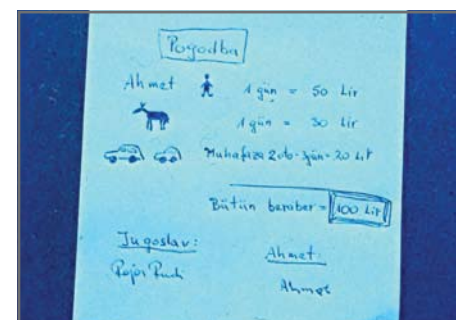 Pogodba
Ahmet 1 gün = 50 Lir
1 gün = 30 Lir
Muhafaza 2 oto - gün = 20 Lir
Bütün beraber = 100 Lir
Jugoslav: Ahmet
Ahmet